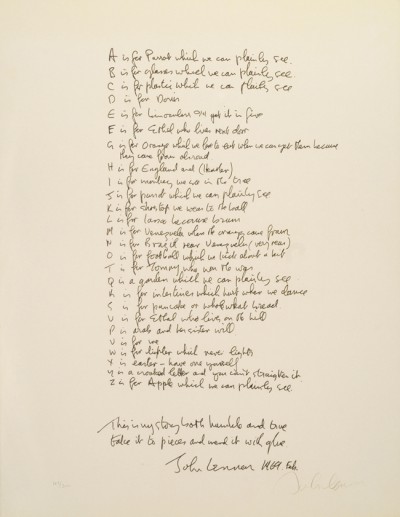 A is for Parrot which we can plainly see.
B is for glasses which we can plainly see.
C is for plastic which we can plainly see
D is for Doris
E is for binoculars I'll get it in five
F is for Ethel who lives next door
G is for Orange which we love to eat when we can get them because
they come from abroad
H is for England and (Heather)
I is for monkey we see in the tree
J is for parrot which we can plainly see
K is for shoetop we wear to the ball
L is for Land because brown
M is for Venezuela where the oranges come from
N is for Brazil near Venezuela (very near)
O is for football which we kick about a bit
T is for Tommy who won the war
Q is a garden which we can plainly see
R is for intestines which hurt when we dance
S is for pancake or whole wheat bread
U is for Ethel who lives on the hill
P is arab and her sister will
V is for me
W is for lighter which never lights
X is easter - have one yourself
Y is a crooked letter and you can't straighten it
Z is for Apple which we can plainly see
This is my story both humble and true
take it to pieces and mend it with glue
John Lennon 1969. Feb.